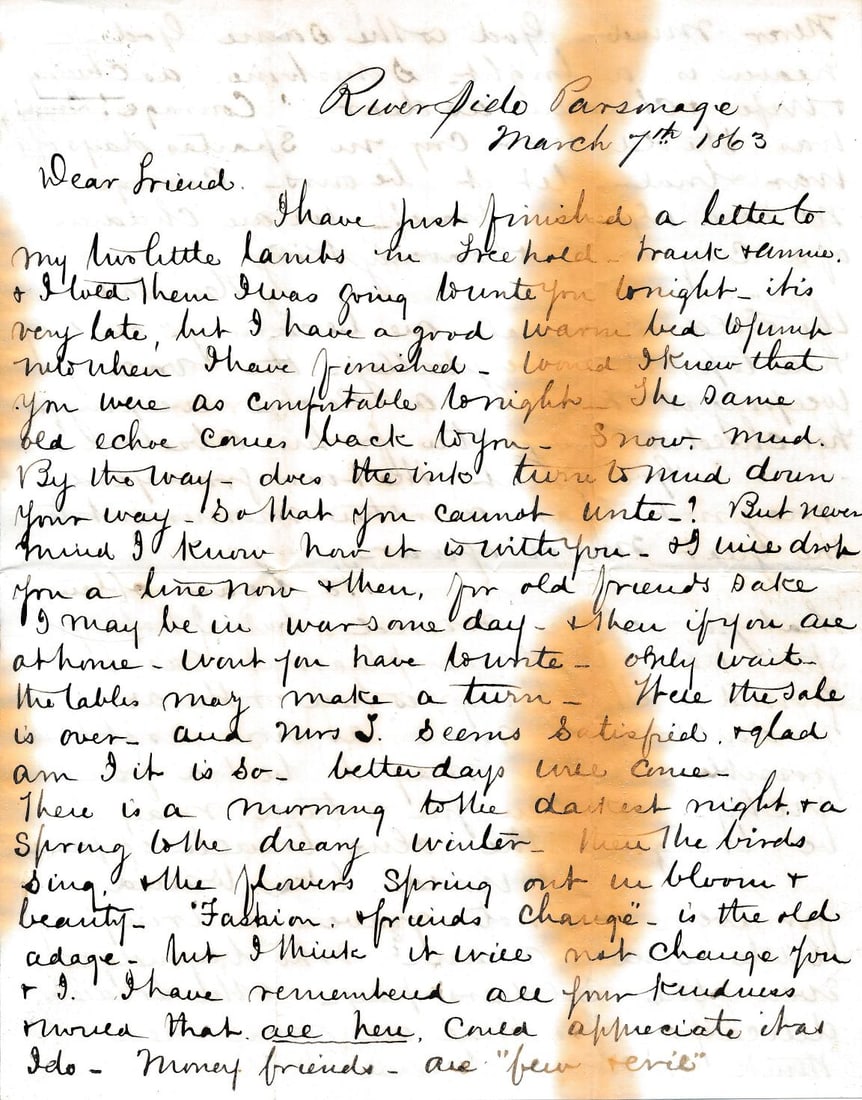 River Side Parsonage
March 7th 1863
Dear Friend.
I have just finished a letter to
my two little lambs in Freehold - Frank & Annie.
& I told them I was going to write you tonight - it is
very late, but I have a good warm bed to jump
into when I have finished - would I knew that
you were as comfortable tonight - The same
old echoe comes back to you - Snow. mud.
By the way - does the ink turn to mud down
your way - so that you cannot write -? But never
mind I know how it is with you - & I will drop
you a line now & then, for old friends sake
I may be in war some day - & then if you are
at home - wont you have to write - only wait -
the tables may make a turn - Well the sale
is over - and Mrs T. seems satisfied, & glad
am I it is so - better days will come -
There is a morning to the darkest night, & a
Spring to the dreary winter - then the birds
sing, & the flowers spring out in bloom &
beauty - "Fashion, & friends change" - is the old
adage - but I think it will not change you
& I. I have remembered all your kindness
& would that all here, could appreciate it as
I do - Money friends - are "few & evil"